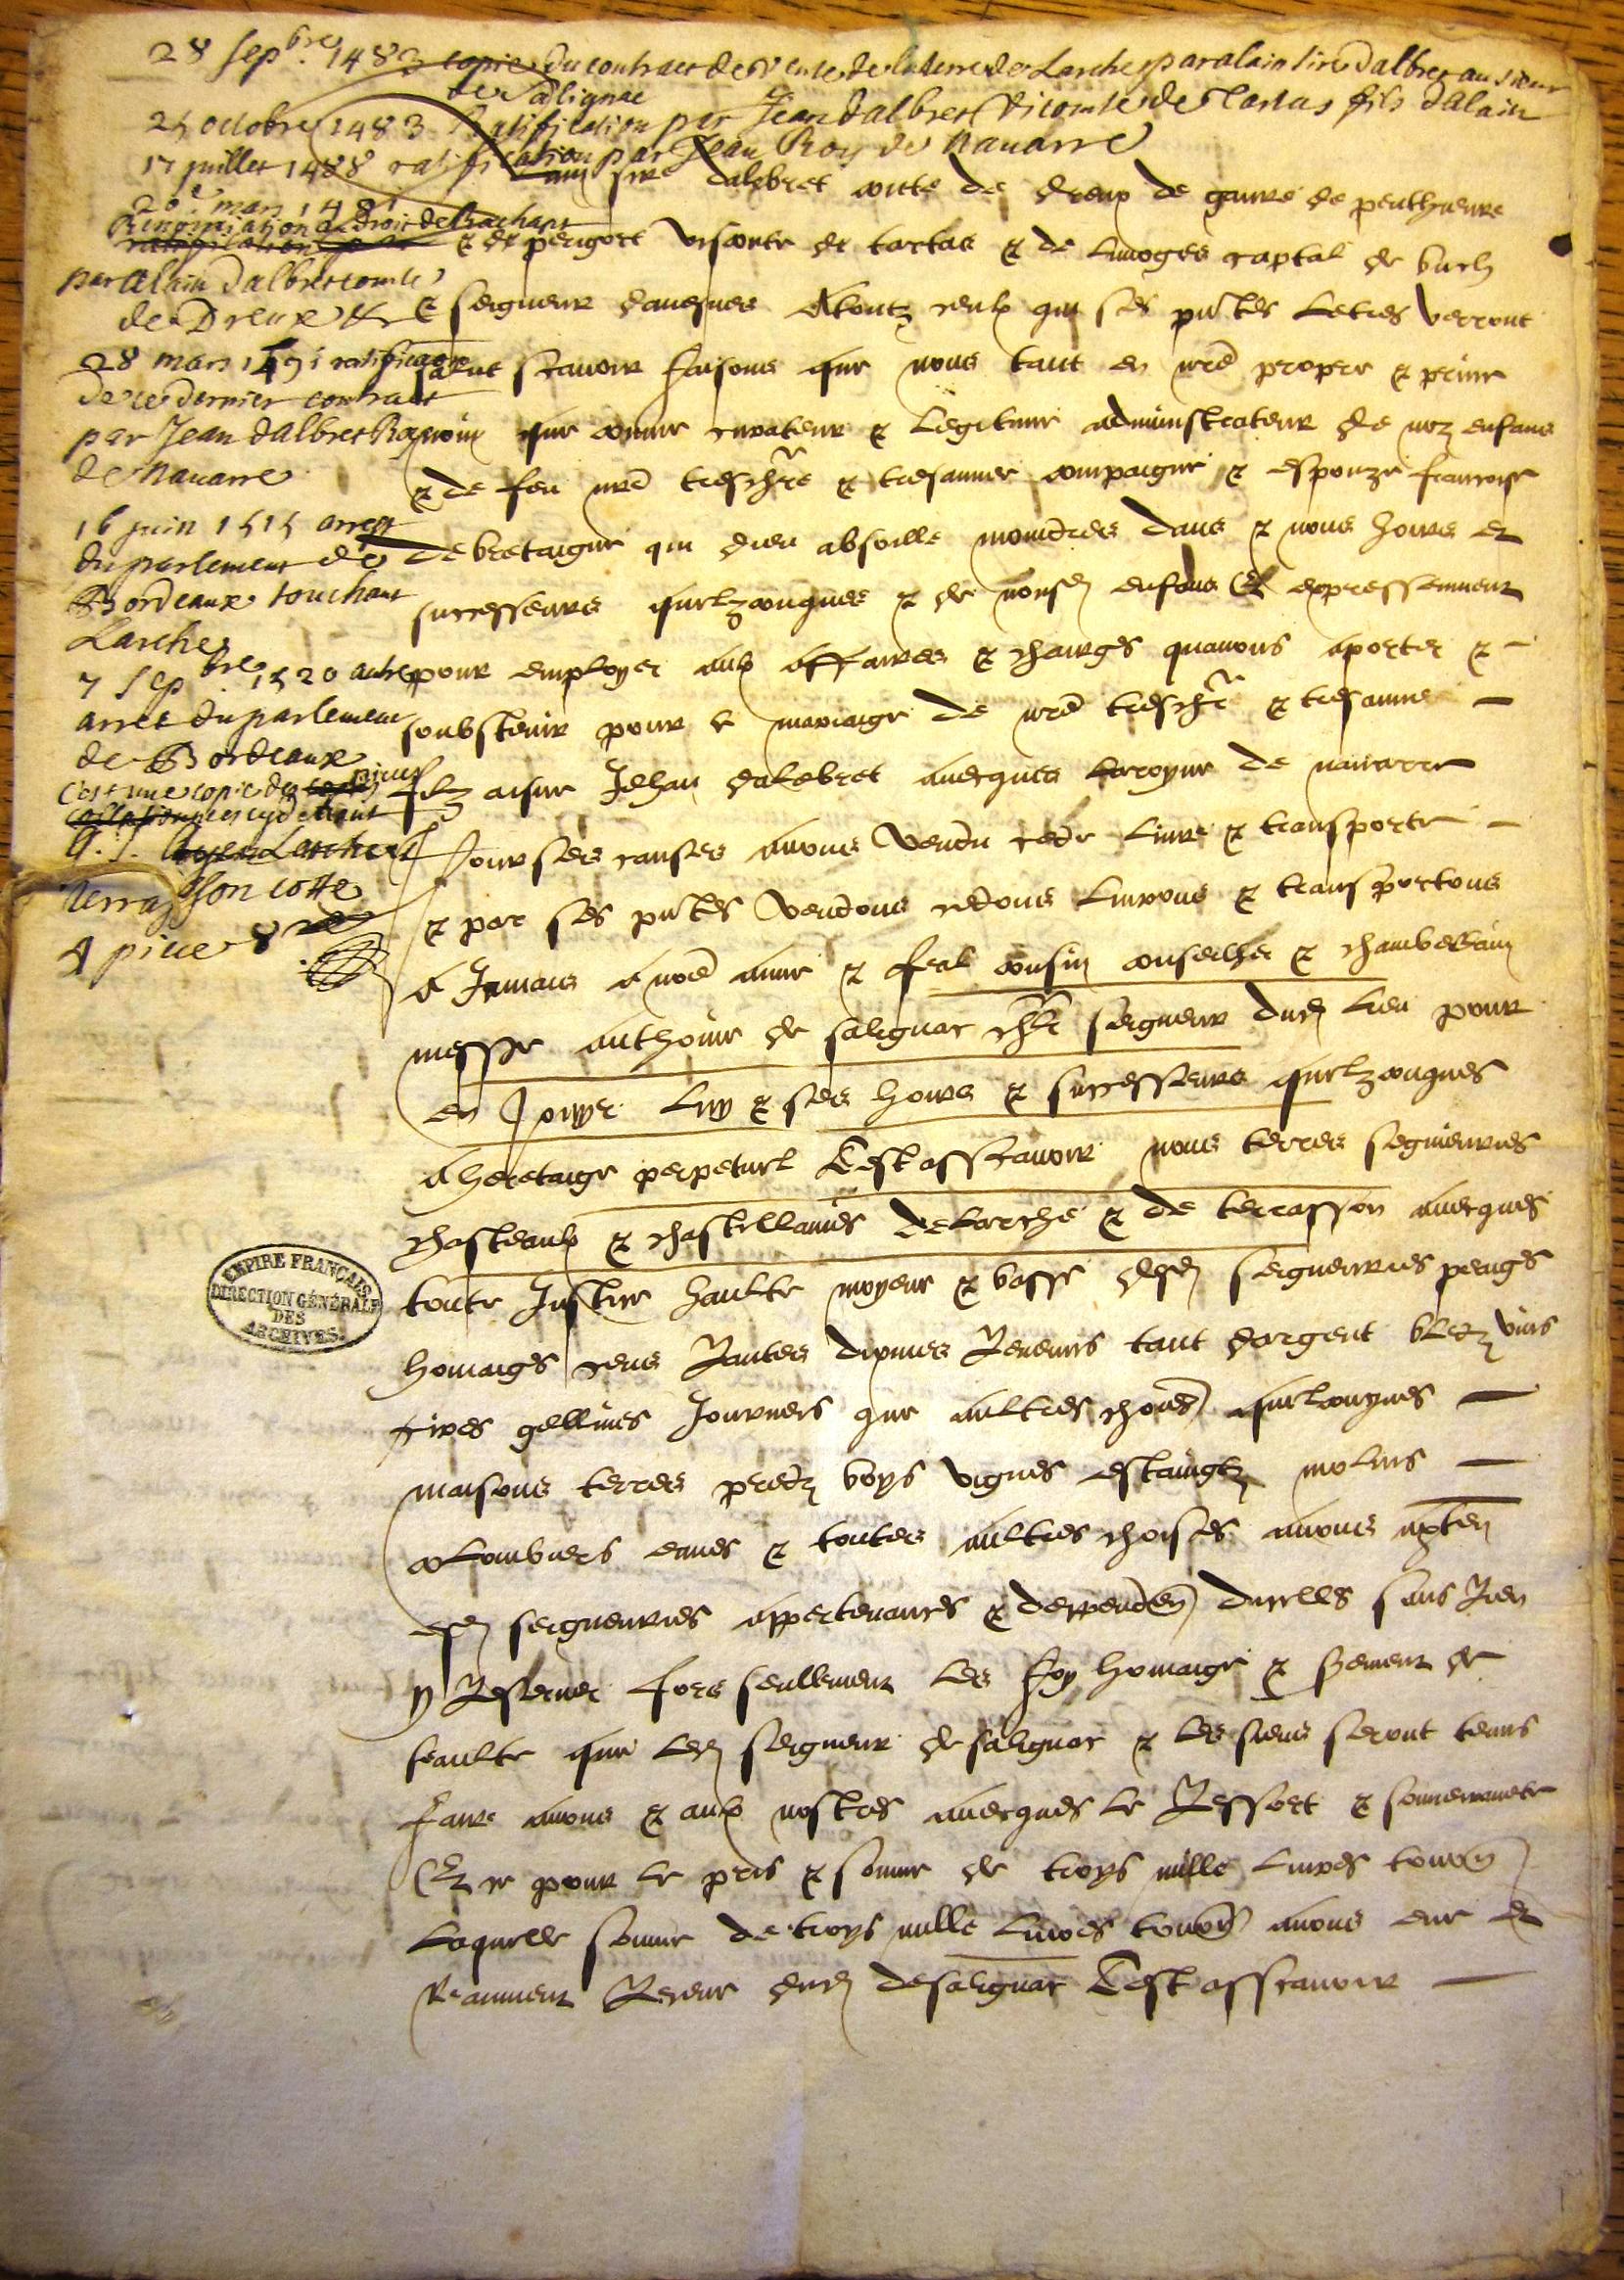 28 sepbre 1483 copie du contract de vente de la terre de Larche par alain sire dalbret au sieur
de Salignac
25 octobre 1483 Ratification par Jean dalbret Vicomte de Tartas fils dalain
17 juillet 1488 ratification par Jean Roy de Navarre
20e mars 1491
Renonciation au droit de Rachapt
par Alain dalbret comte
de Dreux &c
28 mars 1491 ratification
de ce dernier contract
par Jean dalbret Roy
de Navarre
16 juin 1515 arrest
du parlement de
Bordeaux touchant
Larche
7 sepbre 1520 autre
arrest du parlement
de Bordeaux
c'est une copie des pieces
collationnees cy devant
Larche et
terrasson cotte
4 piece 8
EMPIRE FRANÇAIS
DIRECTION GÉNÉRALE
DES
ARCHIVES.
sire dalebret conte de dreux de gaure de penthieure
& de perigort viconte de tartas & de limoges captal de buch
& seigneur davesnes Atoutz ceulx qui ses pntes letres verront
salut scavoir faisons que nous tant en nre propre & prive
nom que comme curateur & legitime administrateur de noz enfans
& de feu nre treschere & tresamee compaigne & espouze francoise
de bretaigne qui dieu absoille moindres dans & nous hoirs et
successeurs quelzconques & de nousd enfans Et expressement
pour employer aulx affaires & charges quavons aporter &
soubstenir pour le mariaige de nre trescher & tresame
filz aisne Jehan dalebret avecques la royne de navarre
Pour ses causes avons vendu cede livre & transporte
& par ses pntes vendons cedons livrons & transportons
A Jamais a nre ame & feal cousin conseilher & chambellain
messe anthoine de salignac chlr seigneur dud lieu pour
en Jouyr luy & ses hoirs & successeurs quelzconques
A heretaige perpetuel Cest asscavoir nous terres segnieuries
chasteaulx & chastellanies de larche & de terrasson avecques
toute Justice haulte moyene & basse desd seigneuries peages
homaiges cens Rantes dixmes Revenus tant dargent bledz vins
cires gellines Journees que aultres choses quelconques
maisons terres predz boys vignes estaingtz molins
colombiers eaues & toutes aultres choses anous apten
esd seigneuries appertenances & deppenden dicelles sans Rien
y Reserver fors seullement les foy homaige & serement de
feaulte que led seigneur de salignac & les siens seront tenus
faire anous & aulx nostres avecques le Ressort & souveranete
Et ce pour le pris & somme de troys mille livres tourn
Laquelle somme de troys mille livres tourn avons eue et
Reaument Receue dud de salignac Cest asscavoir